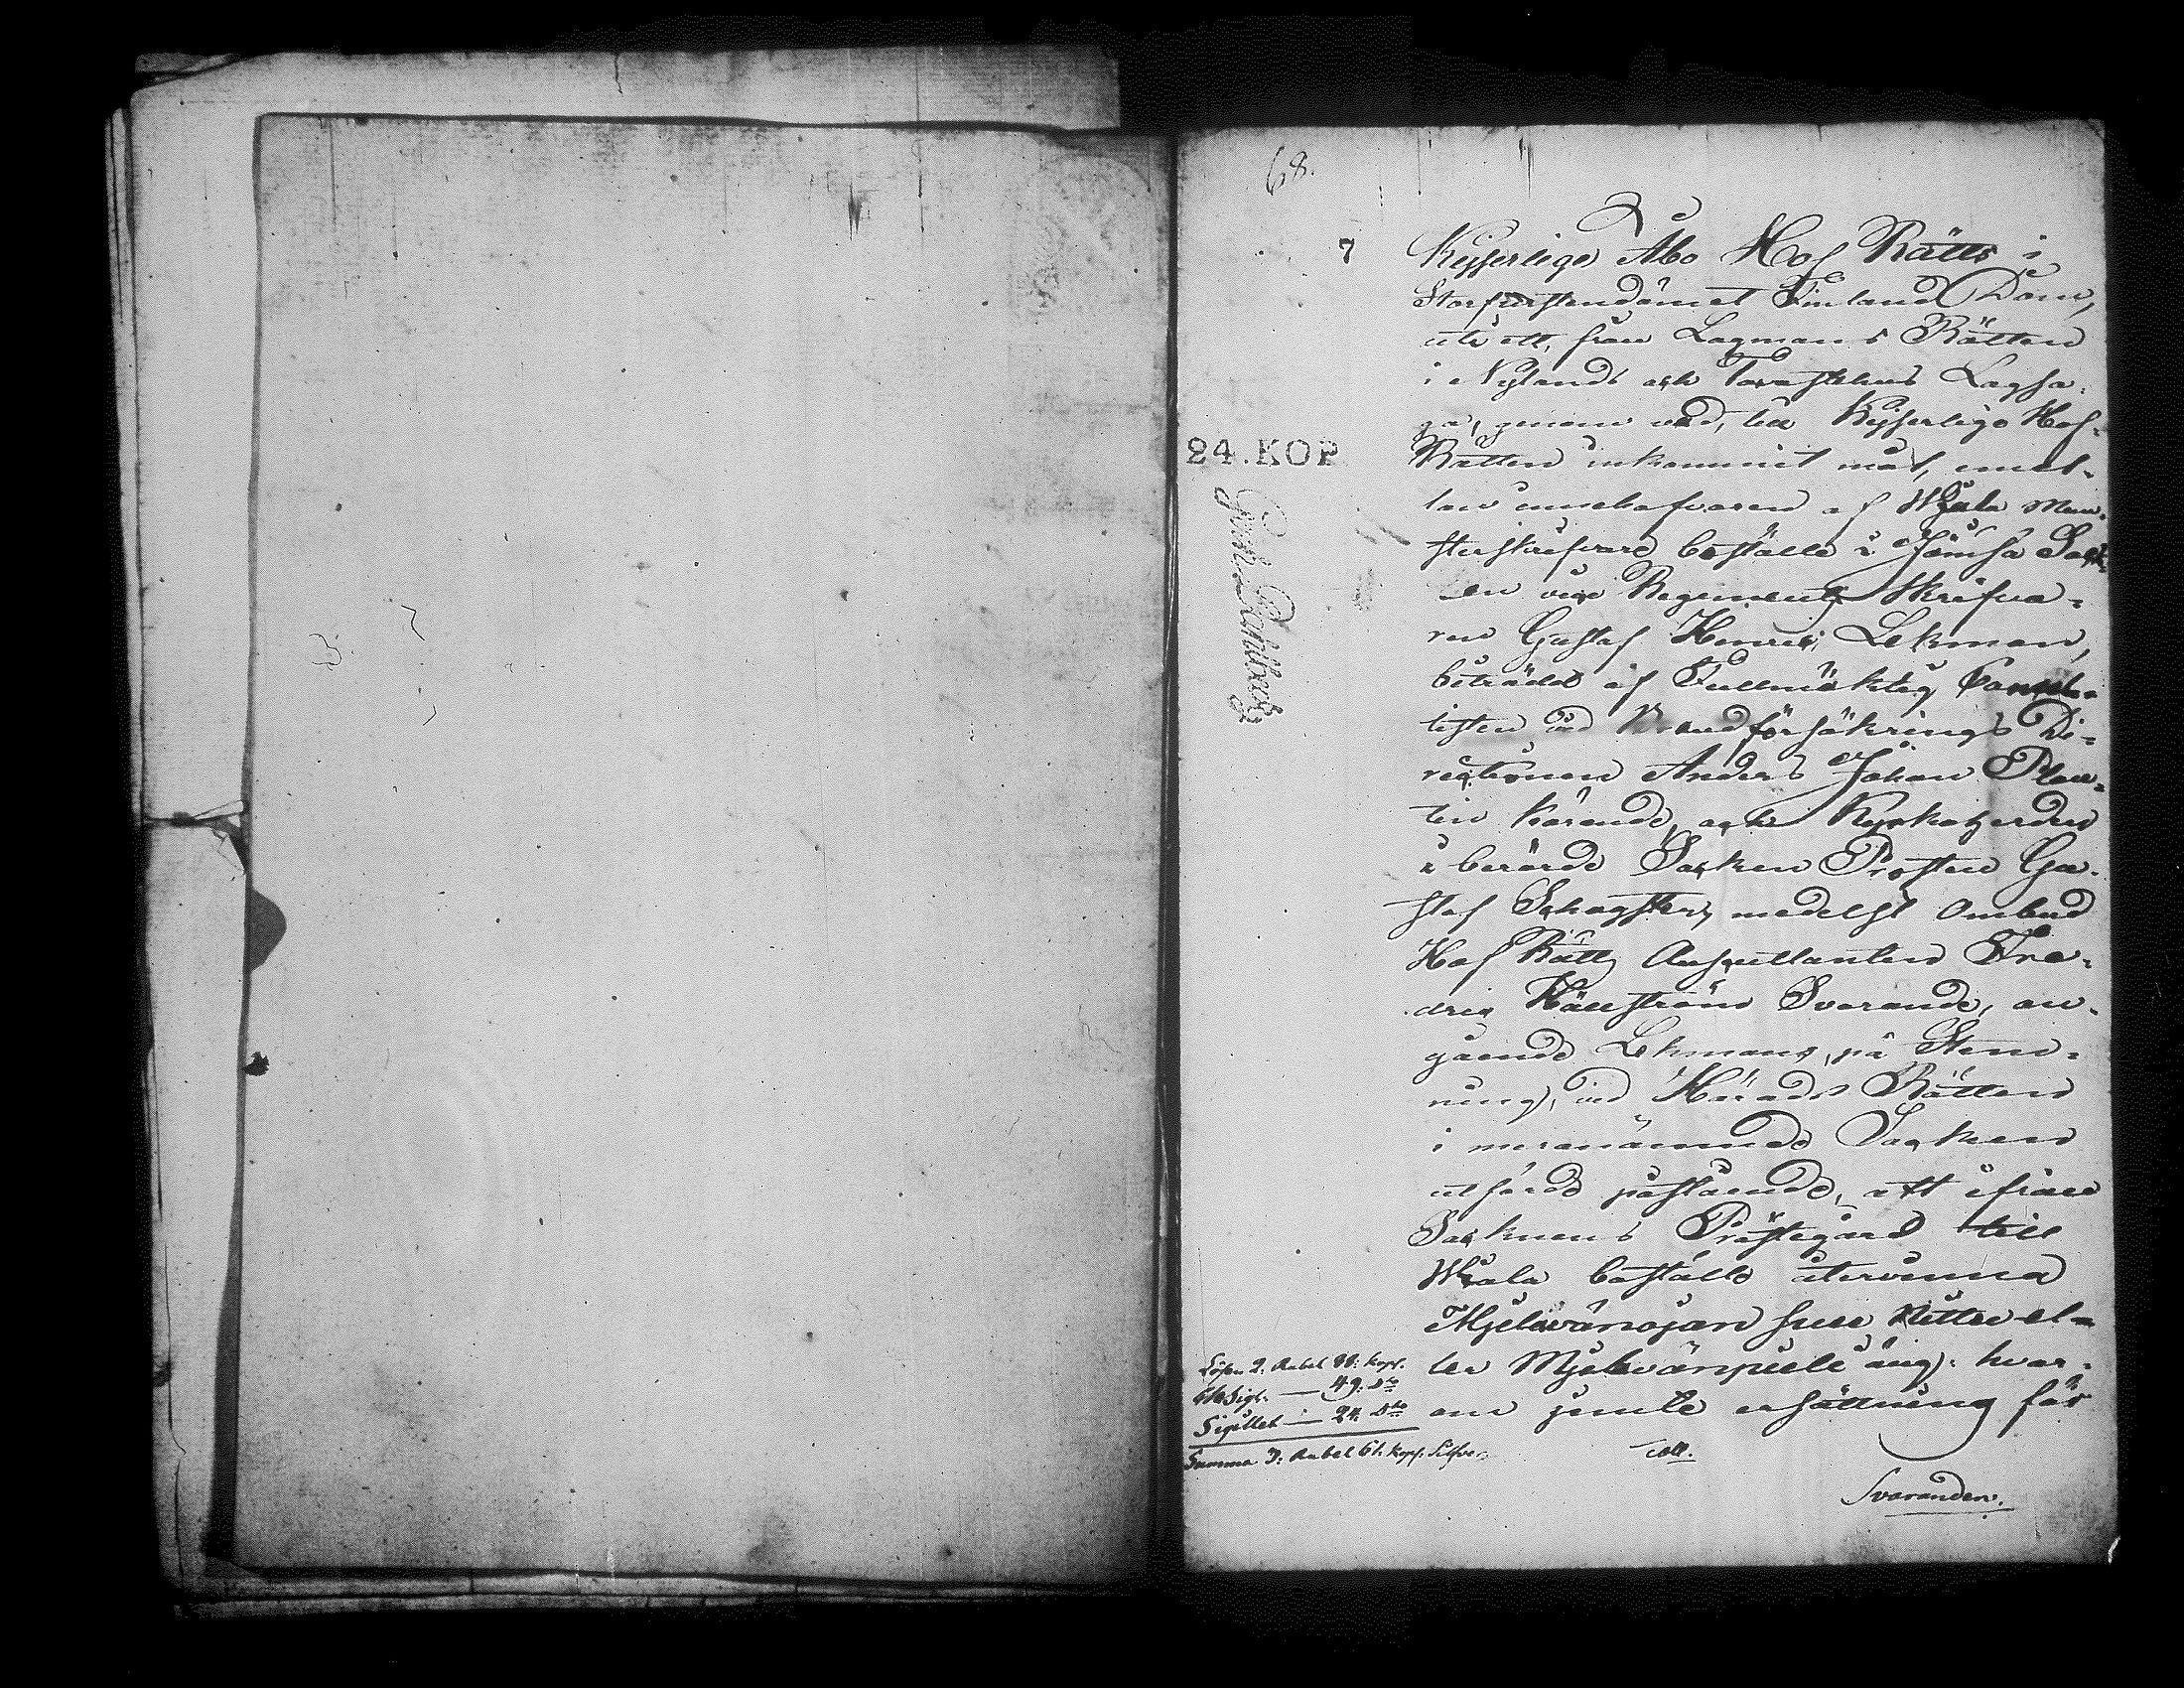 68.
7
Kejserlige Åbo Hof Rätts i
Storfurstendömet Finland Dom,
uti ett, från Lagmans Rätten
i Nylands och Tavastehus Lagsa-
ga, genom vad, till Kejserlige Hof-
Rätten inkommit mål, emel-
lan innehafvaren af Wijala Mön-
sterskrifvare boställe i Jämsä Sock-
en vice Regements Skrifva-
ren Gustaf Henric Lekman,
biträdd af Fullmäktig Cancel-
listen vid Brandförsäkrings Di-
rectionen Anders Johan Plan-
tin kärande, och Kyrkoherden
i berörde Socken Prosten Gu-
staf Schogster, medelst Ombud
Hof Rätts Auscultanten Fre-
dric Hällström Svarande, an-
gående Lekmans, på Stem-
ning, vid Härads Rätten
i meranämnde Socken
utförde påstående, att ifrån
Socknens Prästegård till
Wijala boställe återvinna
Mjelvänojan suu Nittu el-
ler Mjelvänpuli äng: hvar-
om jemte ersättning för
Coll.
Svaranden.
24.KOP
Lösen 2: Rubel 88: kop.
Chsigl. — 49: Dto
Sigillet — 24. Dto
Summa 3: Rubel 61. kop. Silfver